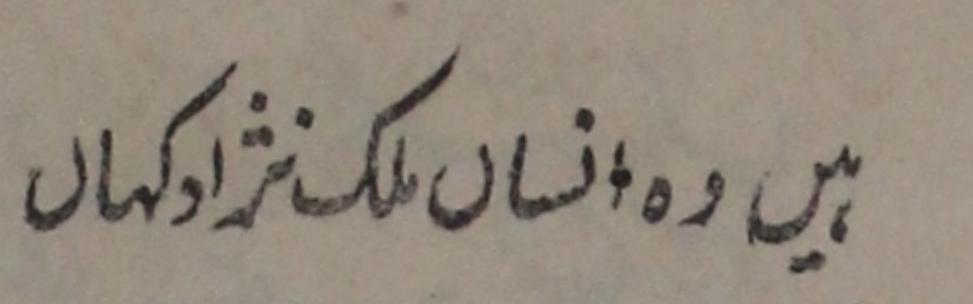 ہیں وہ انساں ملک نژاد کہاں